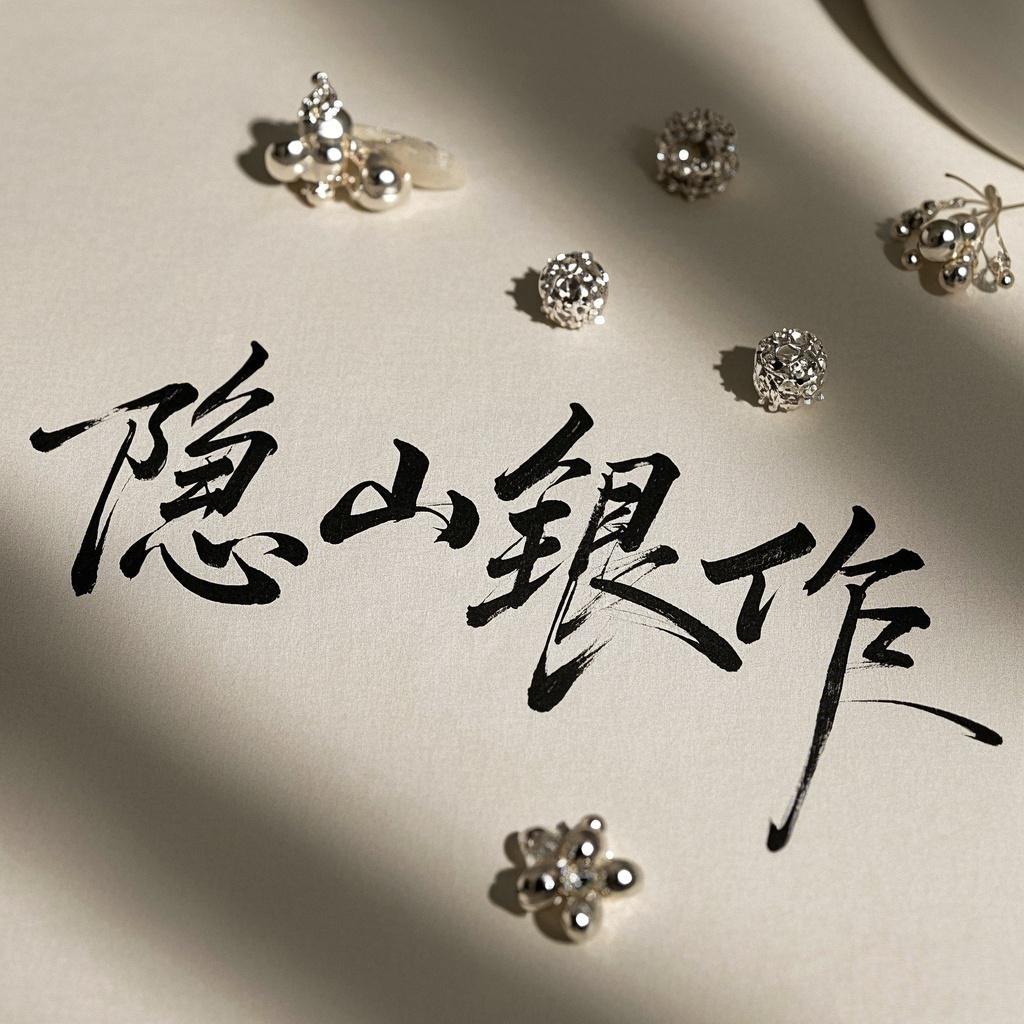 隐山银作